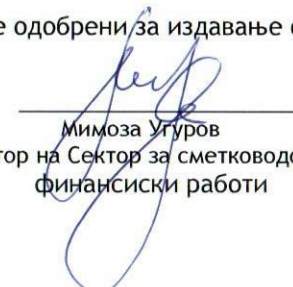 е одобрени за издавање
Мимоза Угуров
тор на Сектор за сметководс
финансиски работи